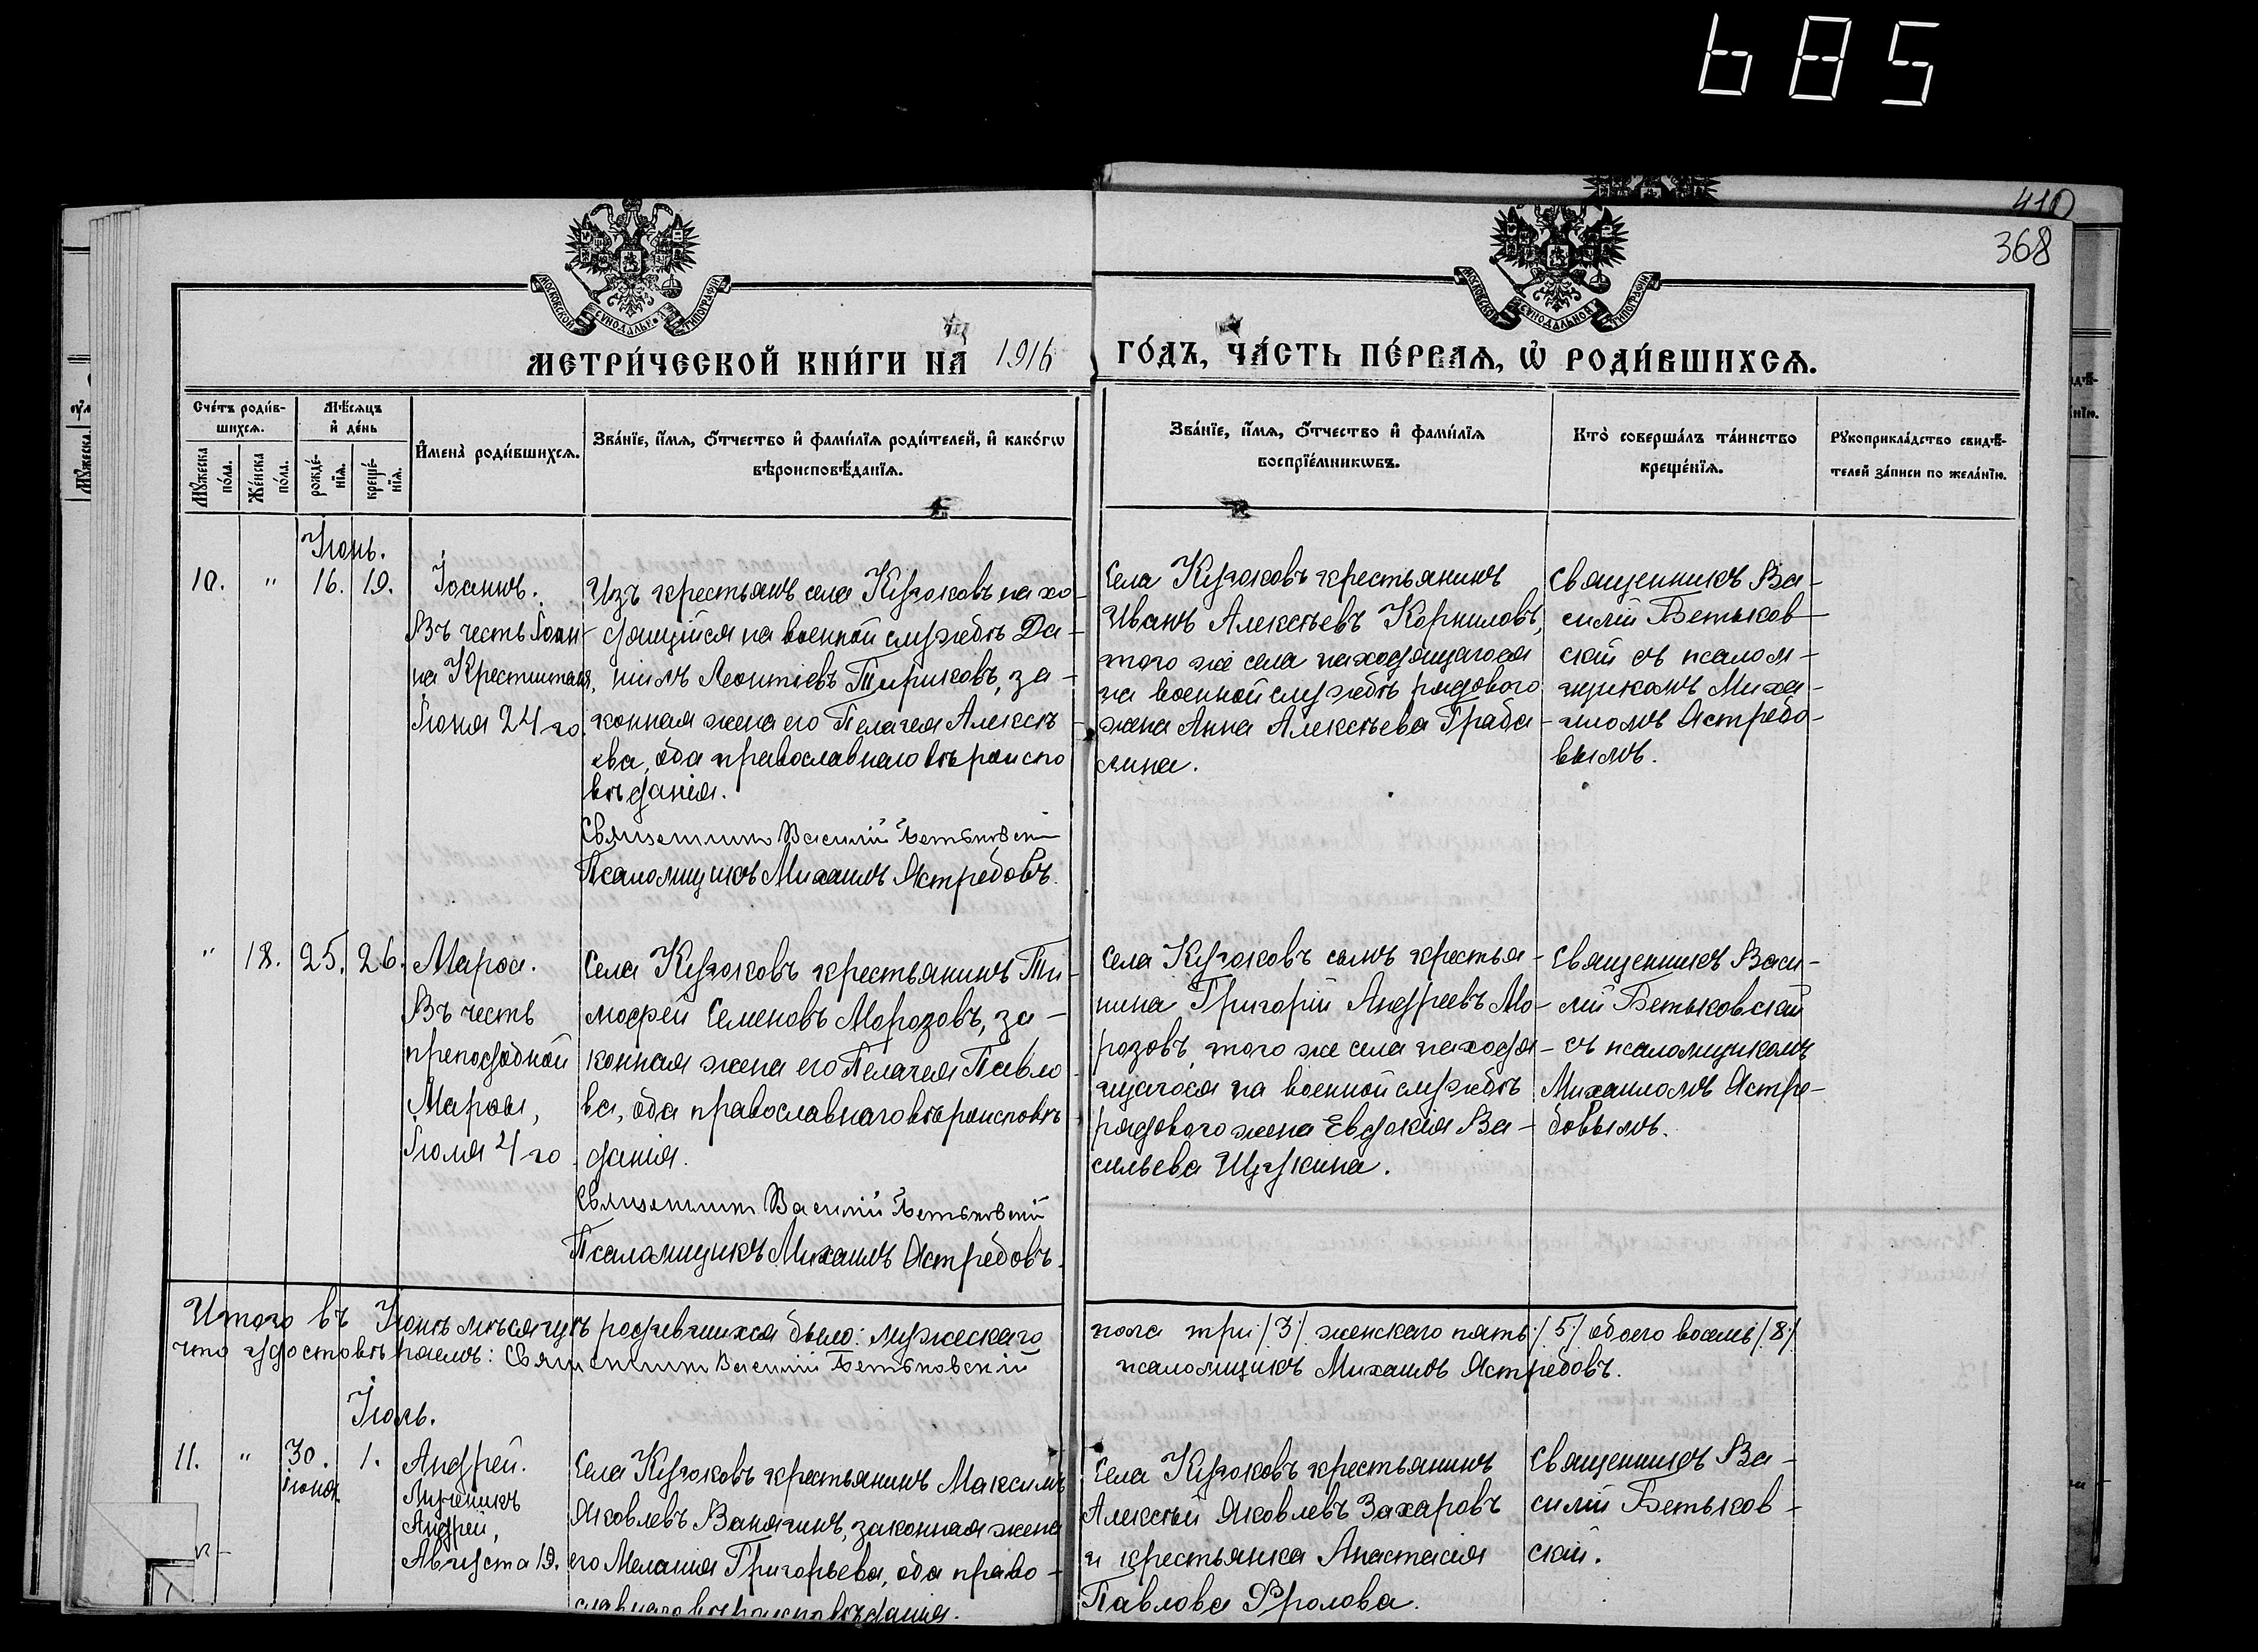 685
410
368
МОСКОВСКОЙ СѴНОДАЛЬНОЙ ТИПОГРАФІИ
МОСКОВСКОЙ СѴНОДАЛЬНОЙ ТИПОГРАФІИ
МЕТРИ́ЧЕСКОЙ КНИ́ГИ НА 1916 ГО́ДЪ, ЧА́СТЬ ПЕ́РВАЯ, Ѽ РОДИ́ВШИХСЯ.
Сче́тъ роди́в-
шихся.
Мꙋ́жеска
по́ла.
Же́нска
по́ла.
Мѣ́сяцъ
и҆ де́нь
рожде́-
нїя.
креще́-
нїя.
И҆мена̀ роди́вшихся.
Зва́нїе, и҆́мя, ѻ҆́тчество и҆ фами́лїя роди́телей, и҆ како́гѡ
вѣроисповѣ́данїя.
Зва́нїе, и҆́мя, ѻ҆́тчество и҆ фами́лїя
воспрїе́мникѡвъ.
Кто̀ соверша́лъ та́инство
креще́нїя.
Рꙋкоприкла́дство свидѣ́-
телей за́писи по жела́нїю.
Іюнь.
10. " 16. 19.
Іоаннъ.
Въ честь Іоан-
на Крестителя,
Іюня 24 го.
Изъ крестьянъ села Кузюковъ нахо-
дящійся на военной службѣ Да-
ніилъ Леонтіевъ Тириковъ, за-
конная жена его Пелагея Алексѣ-
ева, оба православнаго вѣроиспо
вѣданія.
Священникъ Василій Бетьковскій
Псаломщикъ Михаилъ Ястребовъ.
Села Кузюковъ крестьянинъ
Иванъ Алексѣевъ Корниловъ,
того же села находящагося
на военной службѣ рядового
жена Анна Алексѣева Граба-
лина.
Священникъ Ва-
силій Бетьков-
скій съ псалом-
щикомъ Миха-
иломъ Ястребо-
вымъ.
" 18. 25. 26.
Марѳа.
Въ честь
преподобной
Марѳы,
Іюля 4 го
Села Кузюковъ крестьянинъ Ти-
моѳей Семеновъ Морозовъ, за-
конная жена его Пелагея Павло-
ва, оба православнаго вѣроисповѣ
данія.
Священникъ Василій Бетьковскій
Псаломщикъ Михаилъ Ястребовъ.
Села Кузюковъ сынъ крестья-
нина Григорій Андреевъ Мо-
розовъ, того же села находя-
щагося на военной службѣ
рядового жена Евдокія Ва-
сильева Щукина.
Священникъ Васи-
лій Бетьковскій
съ псаломщикомъ
Михаиломъ Ястре-
бовымъ.
Итого въ Іюнѣ мѣсяцѣ родившихся было: мужескаго пола три /3/ женскаго пять /5/ обоего восемь /8/
что удостовѣряемъ: Священникъ Василій Бетьковскій псаломщикъ Михаилъ Ястребовъ.
Іюль.
11. " 30. 1.
іюня.
Андрей.
Мученикъ
Андрей,
Августа 19.
Села Кузюковъ крестьянинъ Максимъ
Яковлевъ Ванягинъ, законная жена
его Меланія Григорьева, оба право-
славнаго вѣроисповѣданія.
Села Кузюковъ крестьянинъ
Алексѣй Яковлевъ Захаровъ
и крестьянка Анастасія
Павлова Фролова.
Священникъ Ва-
силій Бетьков-
скій.